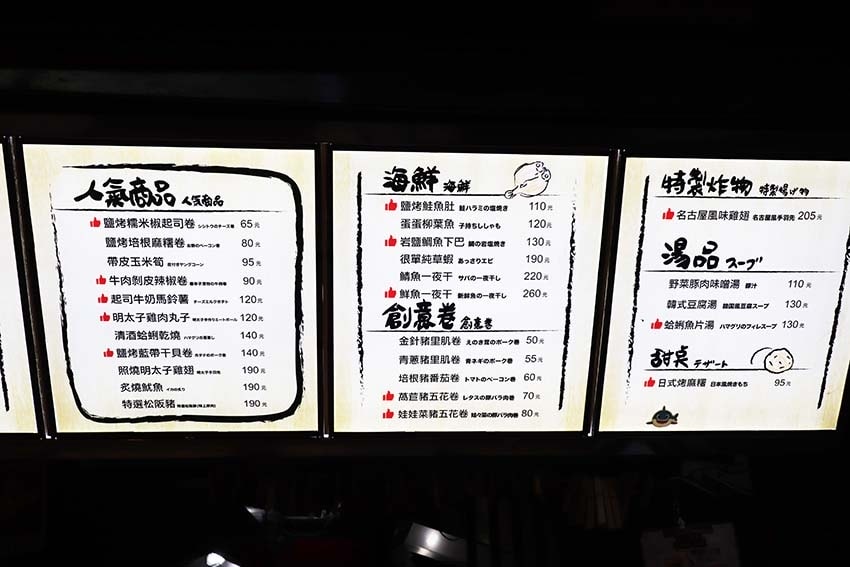 人氣商品 人気商品
鹽烤糯米椒起司卷 シシトウのチーズ巻 65元
鹽烤培根麻糬卷 80元
帶皮玉米筍 皮付きヤングコーン 95元
牛肉剝皮辣椒卷 90元
起司牛奶馬鈴薯 チーズミルクポテト 120元
明太子雞肉丸子 120元
清酒蛤蜊乾燒 140元
鹽烤藍帶干貝卷 140元
照燒明太子雞翅 190元
炙燒魷魚 イカの炙り 190元
特選松阪豬 190元
海鮮 海鮮
鹽烤鮭魚肚 鮭ハラミの塩焼き 110元
蛋蛋柳葉魚 子持ちししゃも 120元
岩鹽鯛魚下巴 鯛の岩塩焼き 130元
很單純草蝦 あっさりエビ 190元
鯖魚一夜干 サバの一夜干し 220元
鮮魚一夜干 新鮮魚の一夜干し 260元
創意卷 創意巻
金針豬里肌卷 えのき茸のポーク巻 50元
青蔥豬里肌卷 青ネギのポーク巻 55元
培根豬番茄卷 トマトのベーコン巻 60元
萵苣豬五花卷 レタスの豚バラ肉巻 70元
娃娃菜豬五花卷 娃々菜の豚バラ肉巻 80元
特製炸物 特製揚げ物
名古屋風味雞翅 名古屋風手羽先 205元
湯品 スープ
野菜豚肉味噌湯 豚汁 110元
韓式豆腐湯 韓国風豆腐スープ 130元
蛤蜊魚片湯 ハマグリのフィレスープ 130元
甜点 デザート
日式烤麻糬 日本風焼きもち 95元